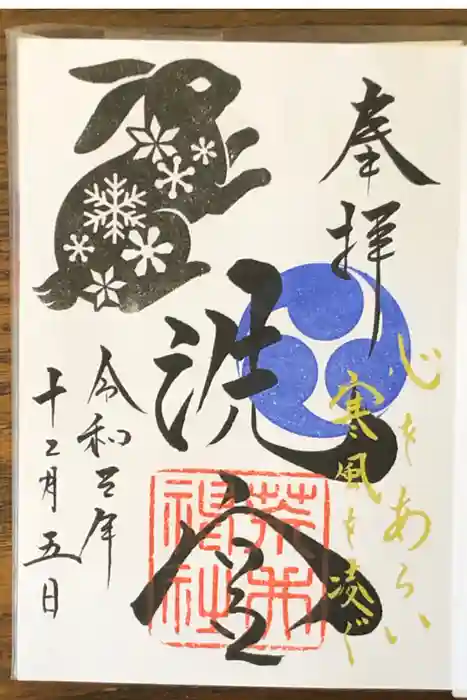 奉拝
心をあらい
寒風を凌ぐ
洗
令和三年
十二月五日